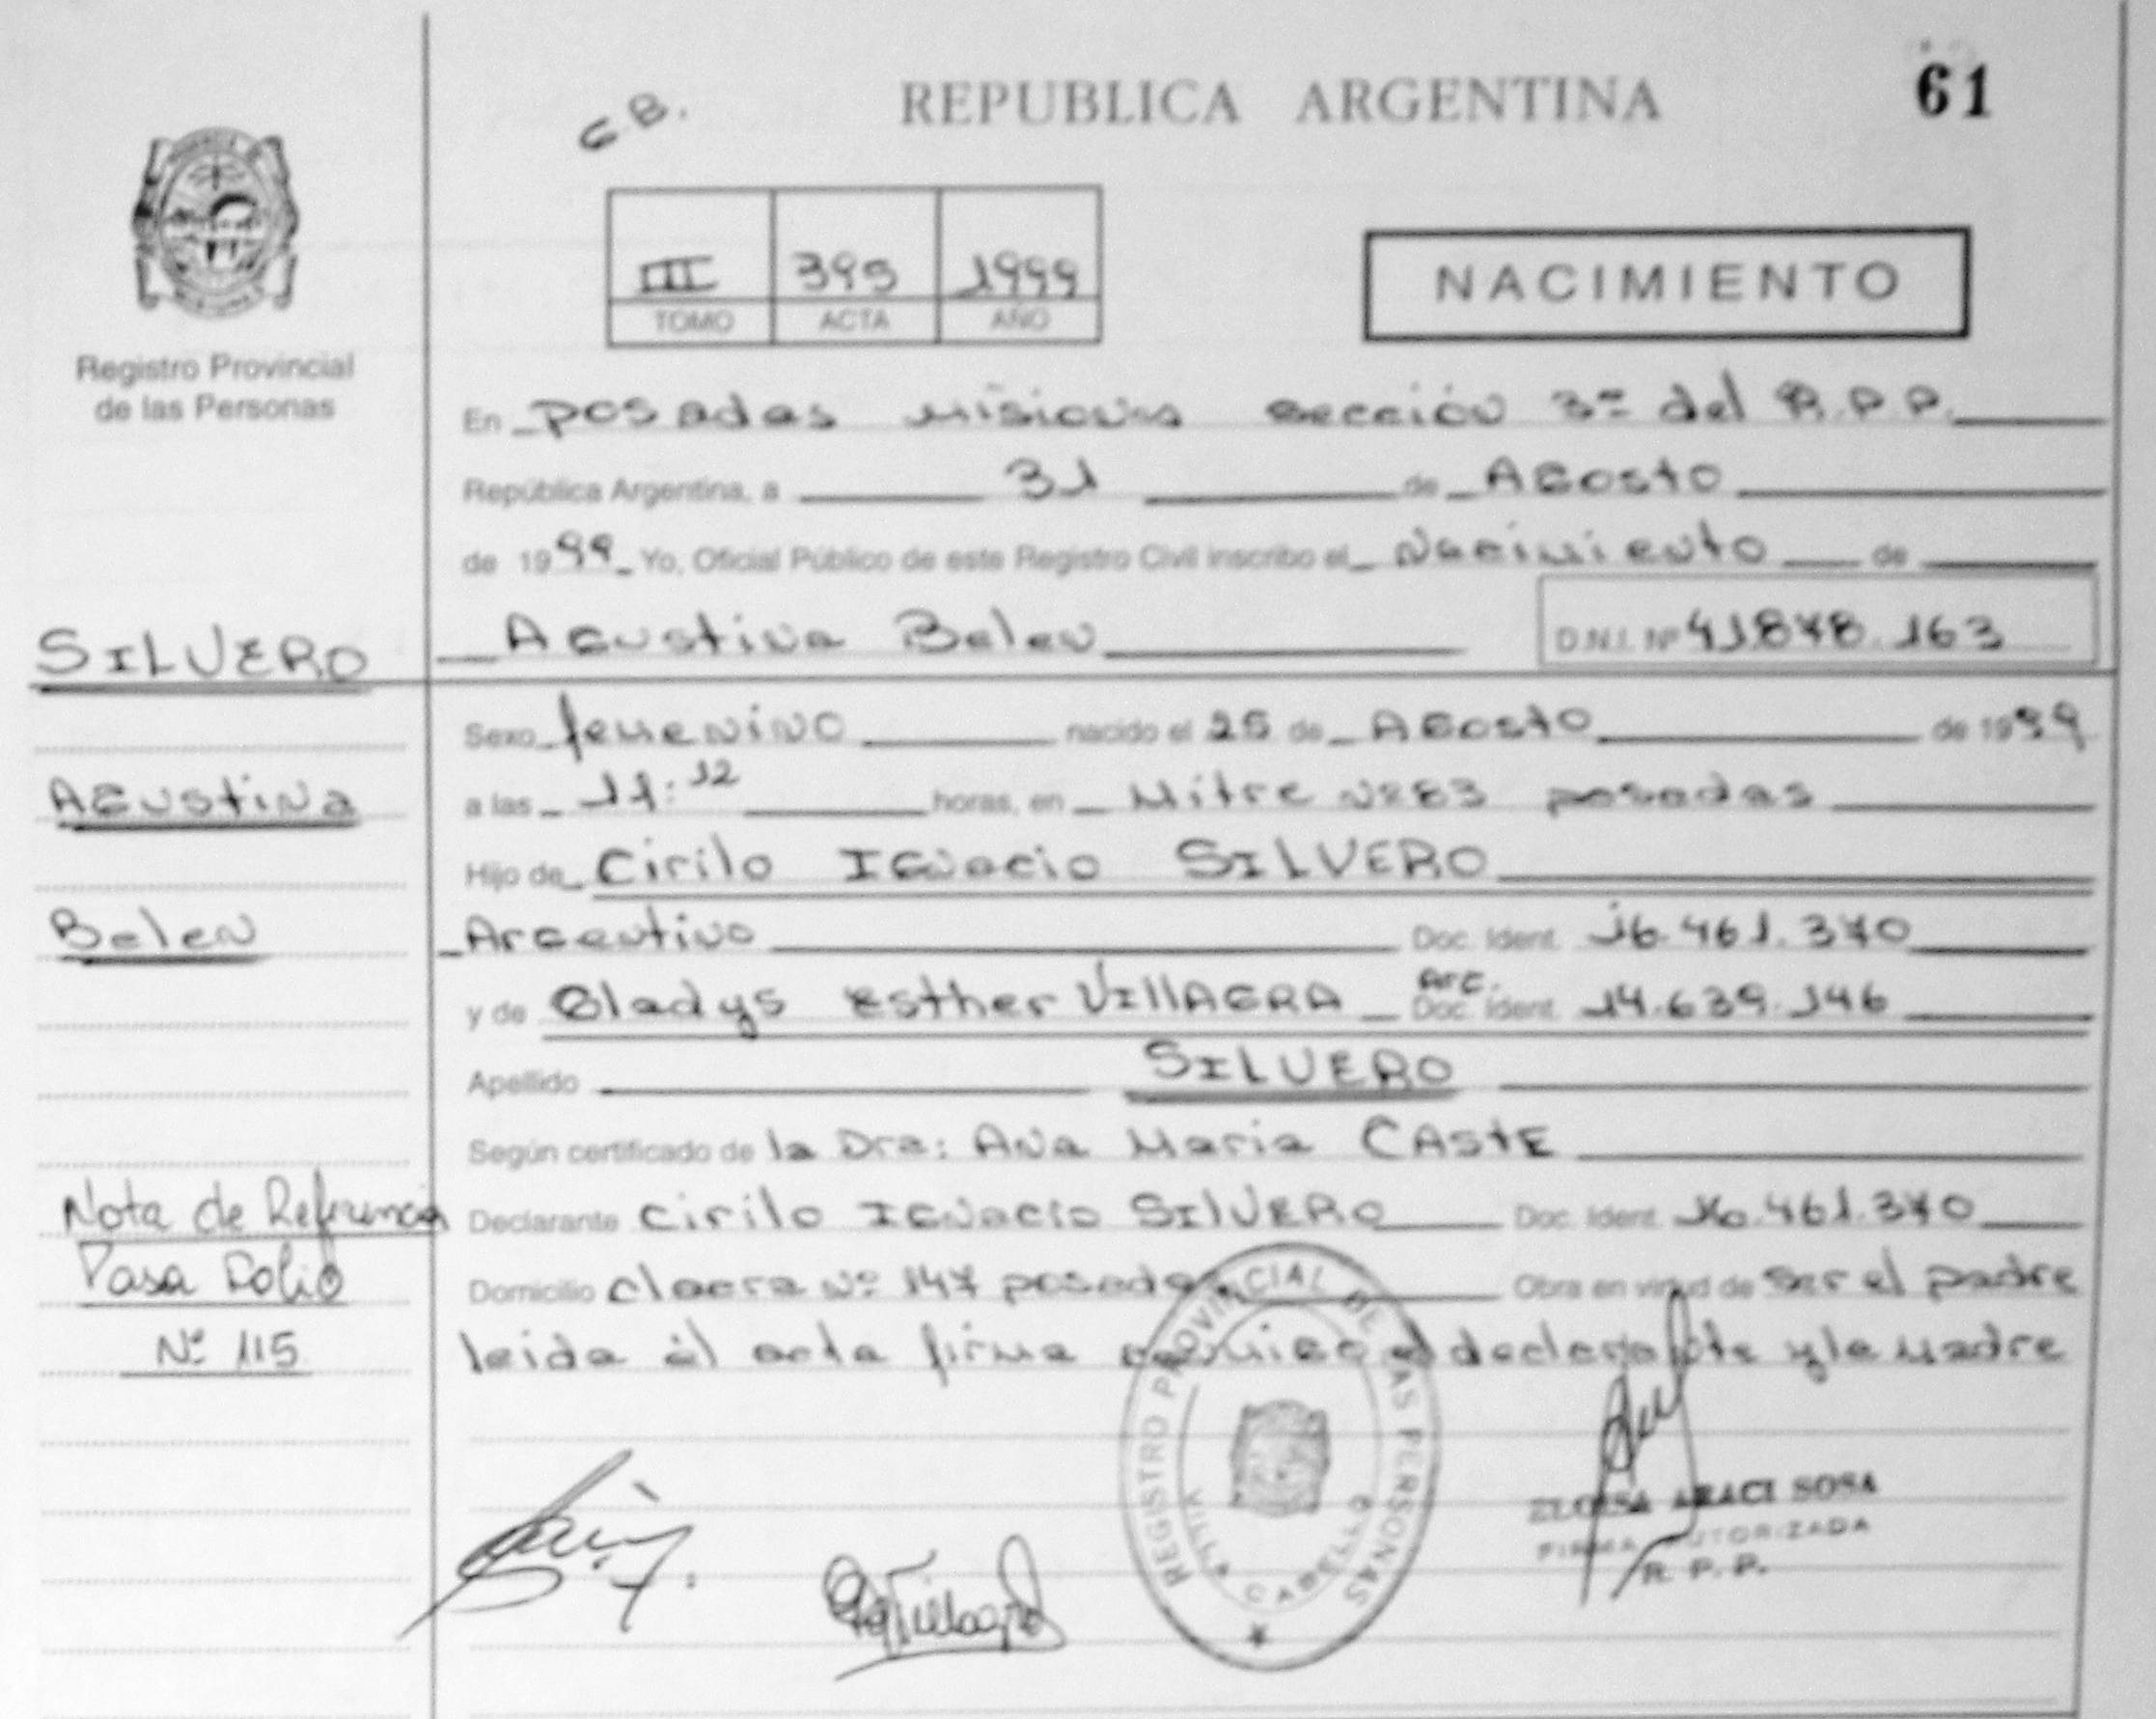 G.B.
REPUBLICA ARGENTINA
61
III 395 1999
TOMO ACTA AÑO
NACIMIENTO
Registro Provincial
de las Personas
En Posadas Misiones sección 3ª del R.P.P.
República Argentina, a 31 de Agosto
de 1999 Yo, Oficial Público de este Registro Civil inscribo el Nacimiento de
SILVERO
Agustina Belen D.N.I. Nº 41.878.163
Sexo femenino nacido el 25 de Agosto de 1999
Agustina
a las 11:12 horas, en Mitre Nº 83 posadas
Hijo de Cirilo Ignacio SILVERO
Belen
Argentino Doc. Ident. 16.461.370
y de Gladys Esther VillAGRA Arg. Doc. Ident. 14.639.146
Apellido SILVERO
Según certificado de la Dra: Ana Maria CAStE
Nota de Referencia
Declarante Cirilo Ignacio SIlVERO Doc. Ident. 16.461.370
Pasa Folio
Domicilio Nº 147 posadas Obra en virtud de ser el padre
Nº 115
leida el acta firma conmigo el declarante y la madre
REGISTRO PROVINCIAL DE LAS PERSONAS
VILLA CABELLO
ELOISA ARACI SOSA
FIRMA AUTORIZADA
R. P. P.